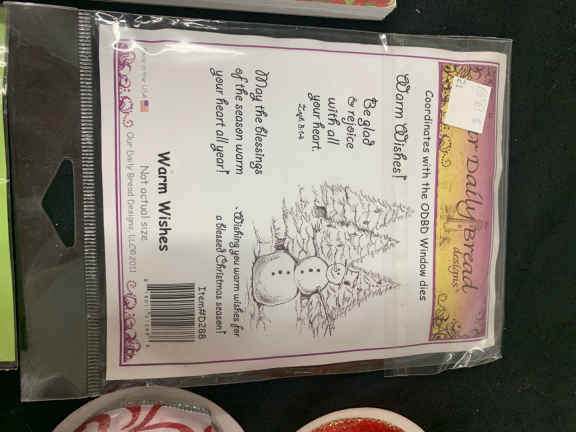 Our Daily Bread
designs
Coordinates with the ODBD Window dies
Warm Wishes!
Be glad
& rejoice
with all
your heart.
Zeph 3:14
May the blessings
of the season warm
your heart all year!
Wishing you warm wishes for
a blessed Christmas season!
Item#D288
Warm Wishes
Not actual size
in the USA
Our Daily Bread Designs, LLC©2011